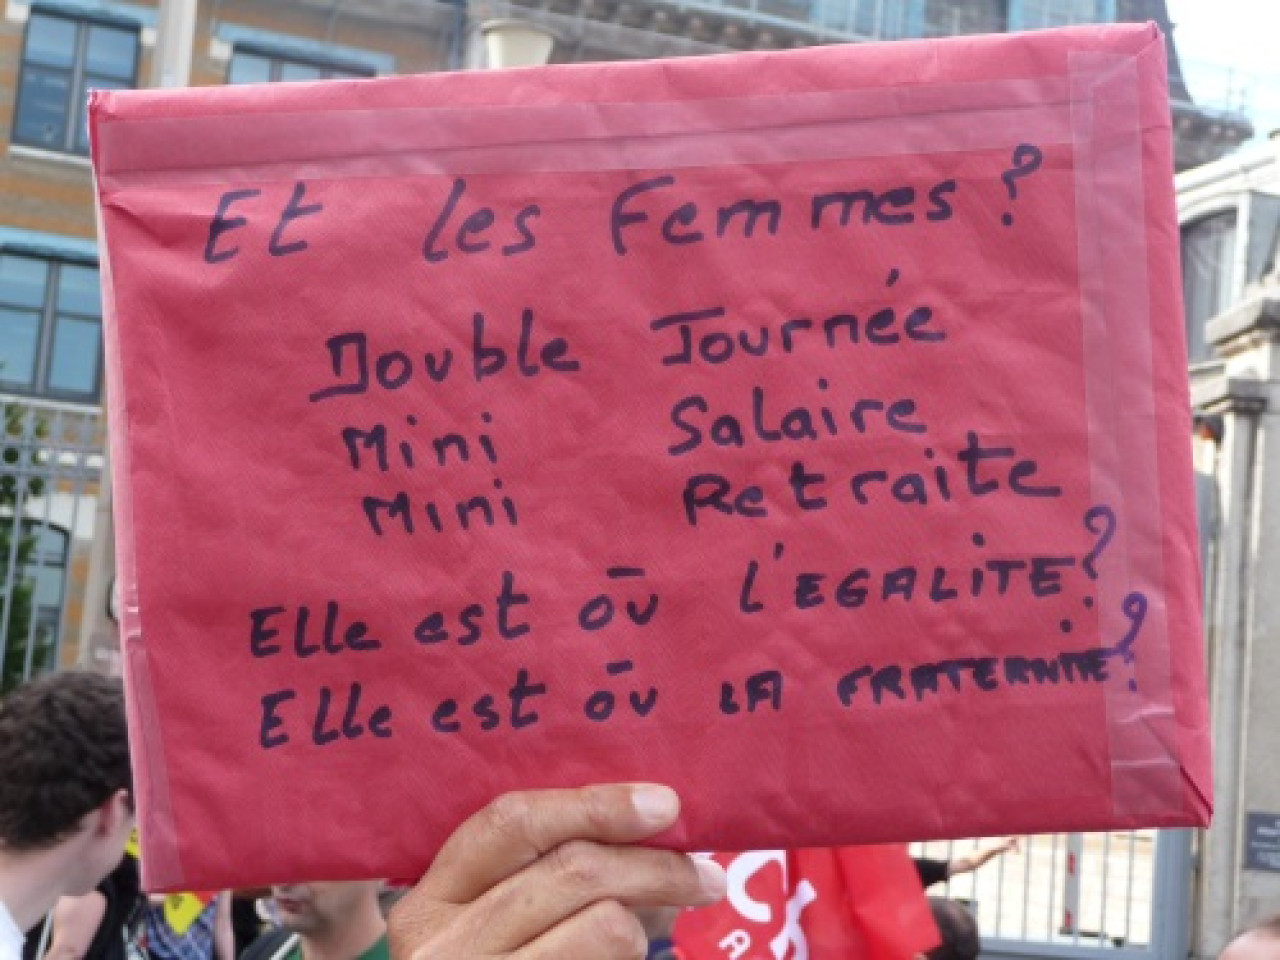 Et les Femmes ?
Double Journée
Mini Salaire
Mini Retraite
Elle est où L'EGALITE ?
Elle est où LA FRATERNITE ?